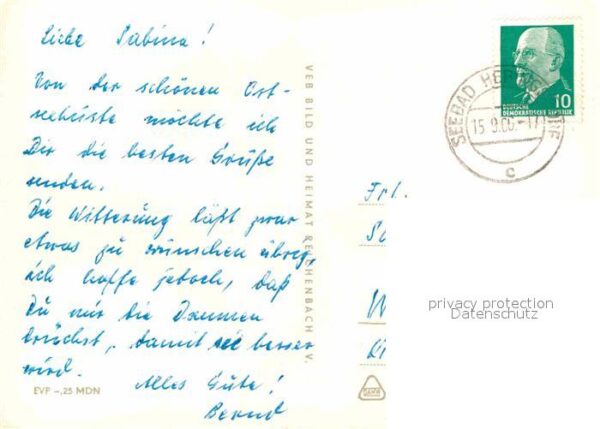 Liebe Sabina!
Von der schönen Ost-
seeküste möchte ich
Dir die besten Grüße
senden.
Die Witterung läßt zwar
etwas zu wünschen übrig,
ich hoffe jedoch, daß
Du mir die Daumen
drückst, damit sie besser
wird.
Alles Gute!
Bernd
EVP -,25 MDN
VEB BILD UND HEIMAT REICHENBACH I. V.
10
DEUTSCHE
DEMOKRATISCHE REPUBLIK
SEEBAD
15.9.66.-17
c
Frl.
privacy protection
Datenschutz